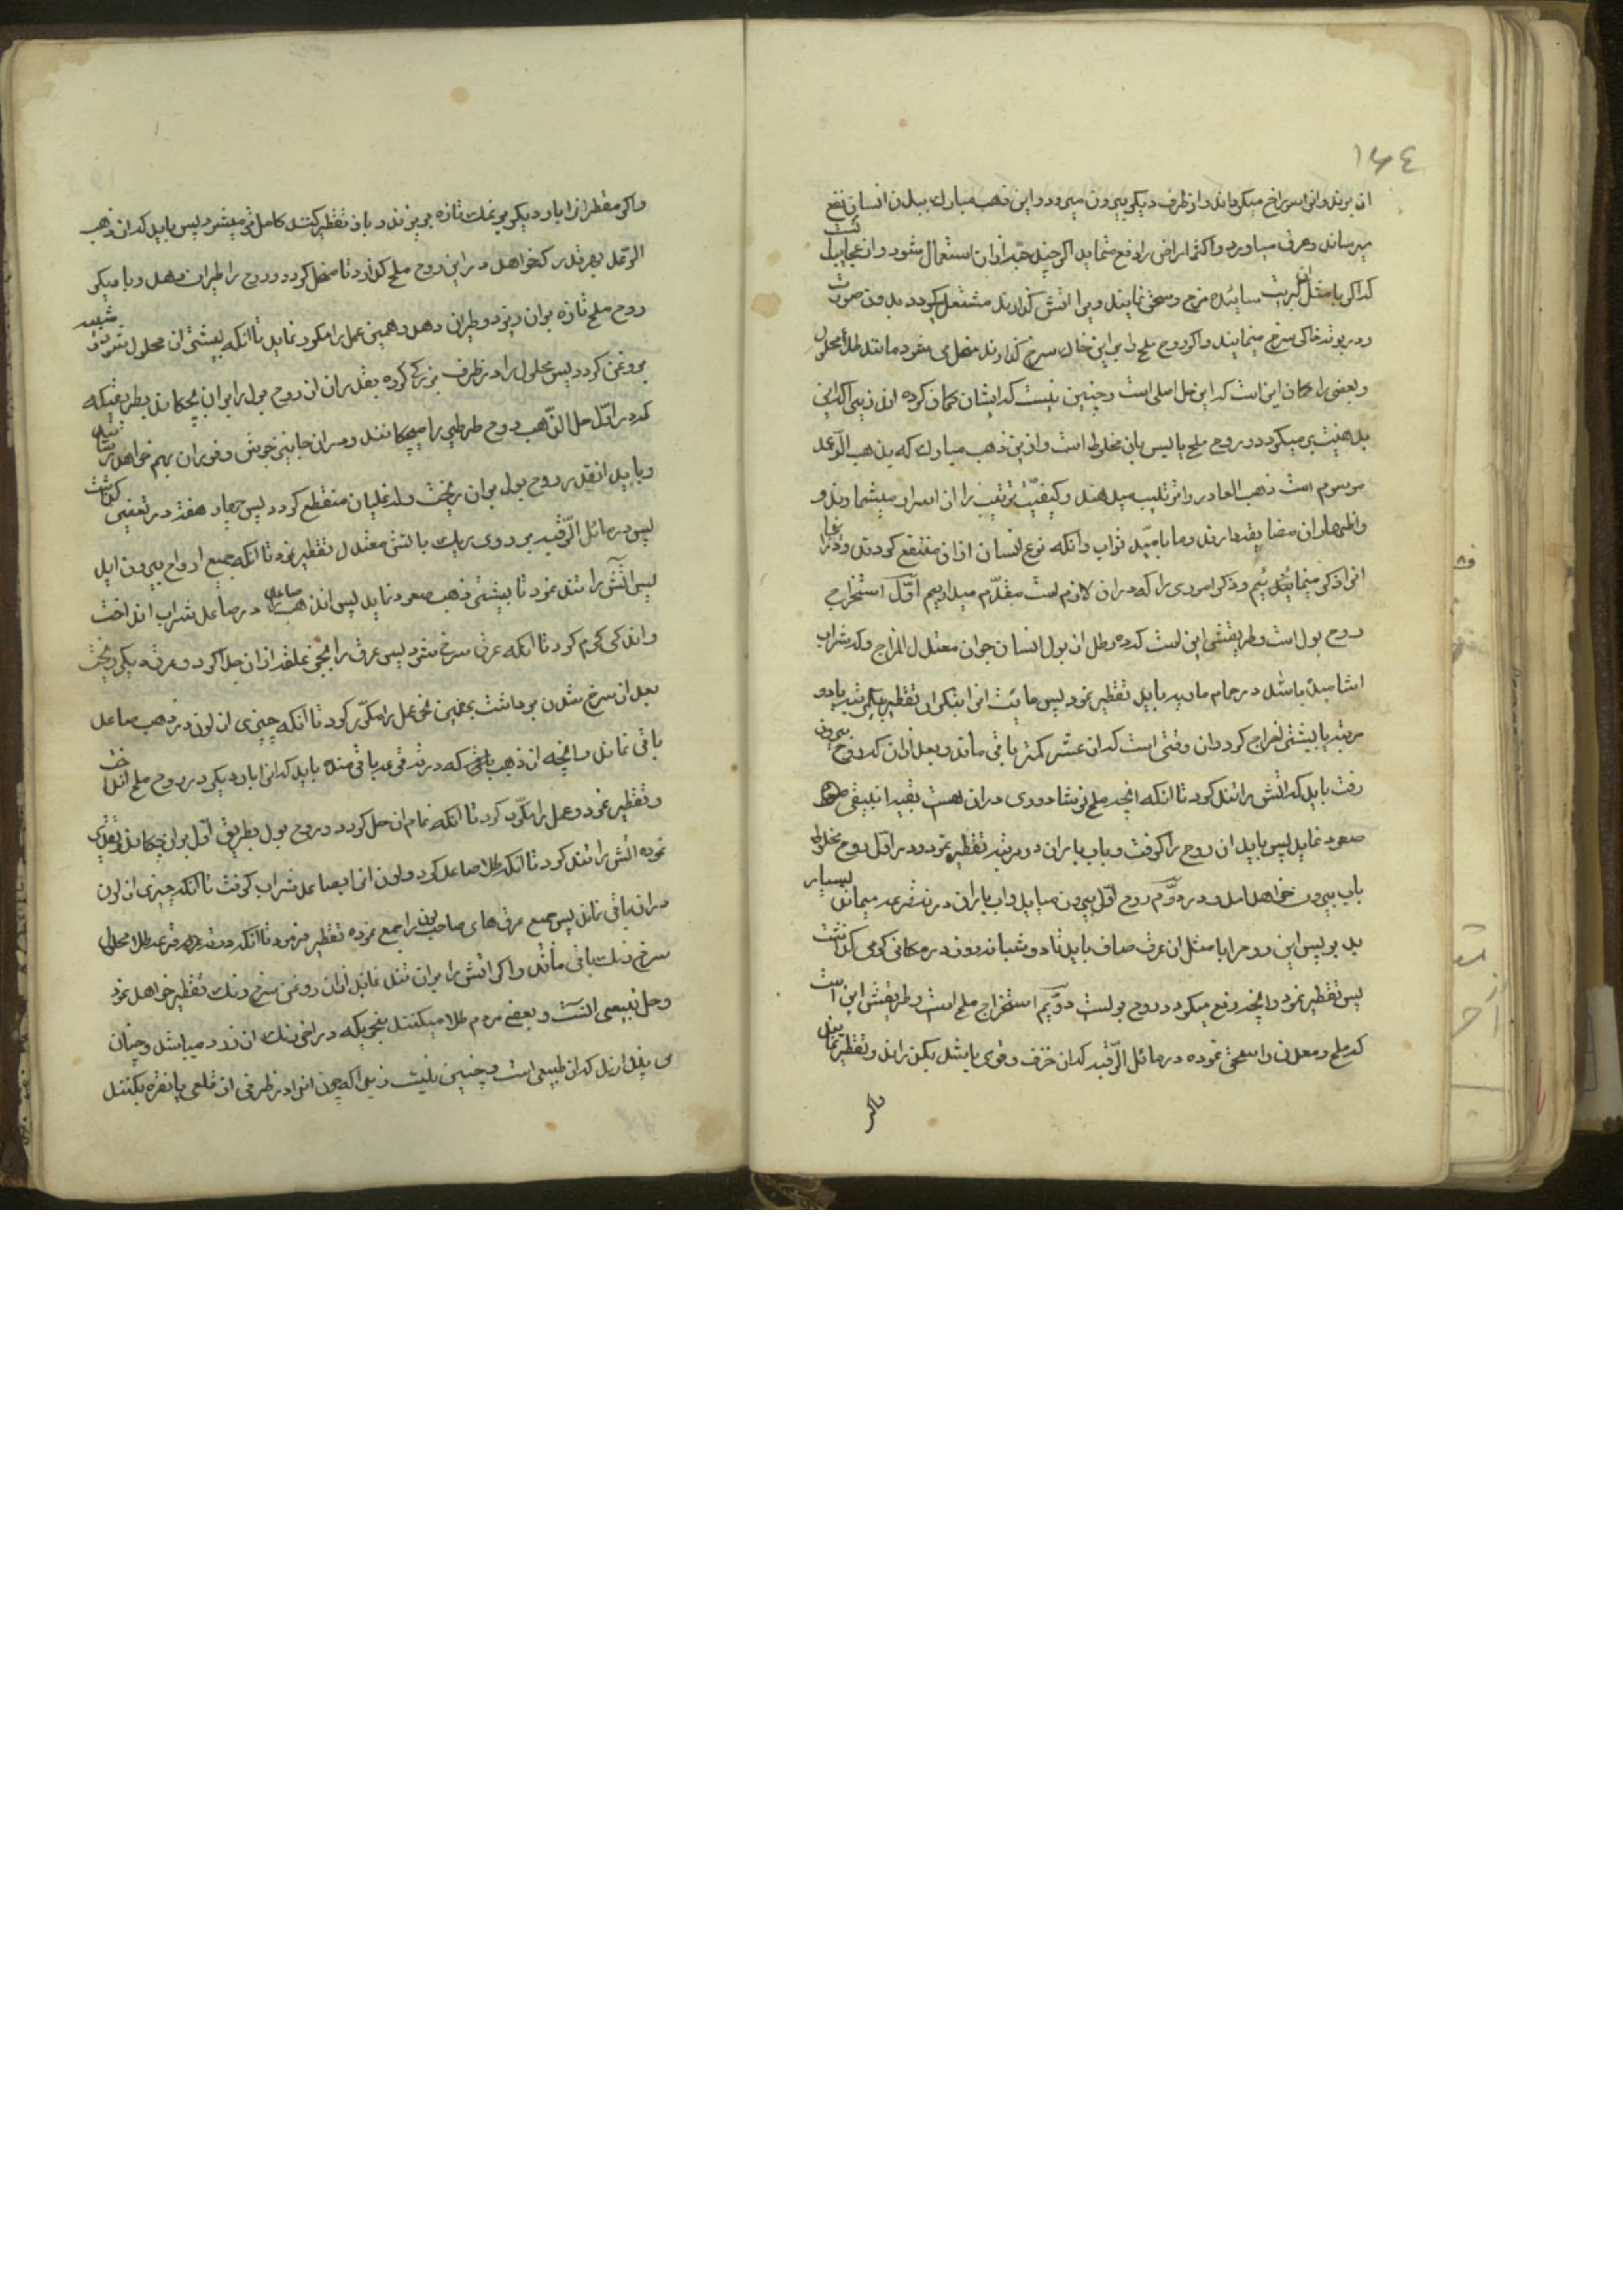 ١٦٤
ان بوته و انرا سراخ میکرداند و از ظرف دیکر بیرون میرود و این ذهب مبارک ببدن انسان نفع
میرساند و عرق میاورد و اکثر امراض را دفع مینماید اکر چند حبه از ان استعمال شود و از عجایب انست
که اکر با مثل ان کبریت سائیده مزج و سحق نمایند و بر اتش کذارند مشتعل میکردد بدون صوت
و در بوته خاکی سرخ مینمایند و اکر روح ملح را بر این خاک سرخ کذارند منحل می شود مانند طلاء محلول
و بعضی را کمان این است که این حل اصلی است و چنین نیست که ایشان کمان کرده اند زیرا که این
بدهنیت بر میکردد و روح ملح یا لیس بان مخلوط است و از این ذهب مبارک که بذهب الرعد
موسوم است ذهب العادر را ترتیب میدهند و کیفیت ترتیب را از اسرار میشمارند و
و اظهار ان مضایقه دارند و ما بامید ثواب و آنکه نوع انسان از ان منتفع کردند و دعا
انرا ذکر مینمائیم و ذکر اموری را که در ان لازم است مقدم میداریم اول استخراج
روح بول است و طریقش این است که ده رطل از بول انسان جوان معتدل المزاج و که شراب
اشامیده باشد در حمام ماریه باید تقطیر نمود پس مائیت انرا بتکرار تقطیر یکمرتبه یا دو
مرتبه یا بیشتر اخراج کرد و ان وقتی است که از عشر کمتر باقی ماند و بعد از ان که روح بیرون
رفت باید که اتش را تند کرد تا انکه انچه ملح نوشادری در ان هست بقبه انبیق
صعود نماید پس باید ان روح را کوفت و باب باران دو مرتبه تقطیر نمود و در اول روح مخلوط
باب بیرون خواهد امد و در دوم روح اول بیرون میاید و اب باران در ته قرعه میماند بسیار
بد بو پس این روح را با مثل ان عرق صاف باید تا دو شبانه روز در مکانی کرمی کذاشت
پس تقطیر نمود و انچه رفع میکردد روح بولست دویم استخراج ملح است و طریقش این است
که ملح معدنی را سحق نموده در مائل الرقبه که از خزف و قوی باشد بکذراند و تقطیر نماید
و اکر مقطر را بار دیکر بر نمک تازه بریزند و باز تقطیر کنند کامل تر میشود پس باید که از ذهب
الرعد بهر قدر که خواهد در این روح ملح کذارد تا منحل کردد و روح را طیران دهد و بار دیکر
روح ملح تازه بر ان ریزد و طیران دهد و همین عمل را مکرر نماید تا انکه بیشتر ان محلول شود و شبیه
بروغن کردد پس محلول را در ظرف بزرکی کرده بقدر ان از روح بول را بر ان بچکاند بطریقیکه
که در اول حل الذهب روح طرطیر را میچکانند و در ان جا نیز جوش و فوران بهم خواهد رسانید
و باید انقدر روح بول بر ان ریخت و که غلیان منقطع کردد پس چهار هفته در تعفین کذاشت
پس در مائل الرقبه بر روی ریک باتش معتدل تقطیر نمود تا انکه جمیع ارواح بیرون اید
پس اتش را تند نمود تا بیشتر ذهب صعود نماید پس ان ذهب صاعد را در صاعد شراب انداخت
و اندکی کرم کرد تا انکه عرق سرخ شود پس عرق را بنحوی علقه از ان جدا کرد و عرق دیکر ریخت
بعد از سرخ شدن برداشت بهمین نحو عمل را مکرر کرد تا انکه چیزی از لون در ذهب صاعد
باقی نماند و انچه از ذهب که در ته قرعه باقی مانده باید که انرا بار دیکر در روح ملح انداخت
و تقطیر نمود و عمل را مکرر کرد تا انکه تمام ان حل کردد و روح بول بطریق اول بر ان چکاند و تقطیر
نموده اتش را تند کرد تا انکه طلا صاعد کردد و لون انرا بصاعد شراب کرفت تا انکه چیزی از لون
در ان باقی نماند پس جمیع عرق های صاحب لون را جمع نموده تقطیر فرمود تا انکه در ته قرعه طلاء محلول
سرخ رنک باقی ماند و اکر اتش را بر ان تند نماید از ان روغن سرخ رنک تقطیر خواهد نمود
و حل طبیعی انست و بعضی مردم طلا میکنند بنحویکه در اخر رنک ان زرد میباشد و چنان
می پندارند که ان طبیعی است و چنین نیست زیرا که چون انرا در ظرفی از قلعی یا نقره بکنند